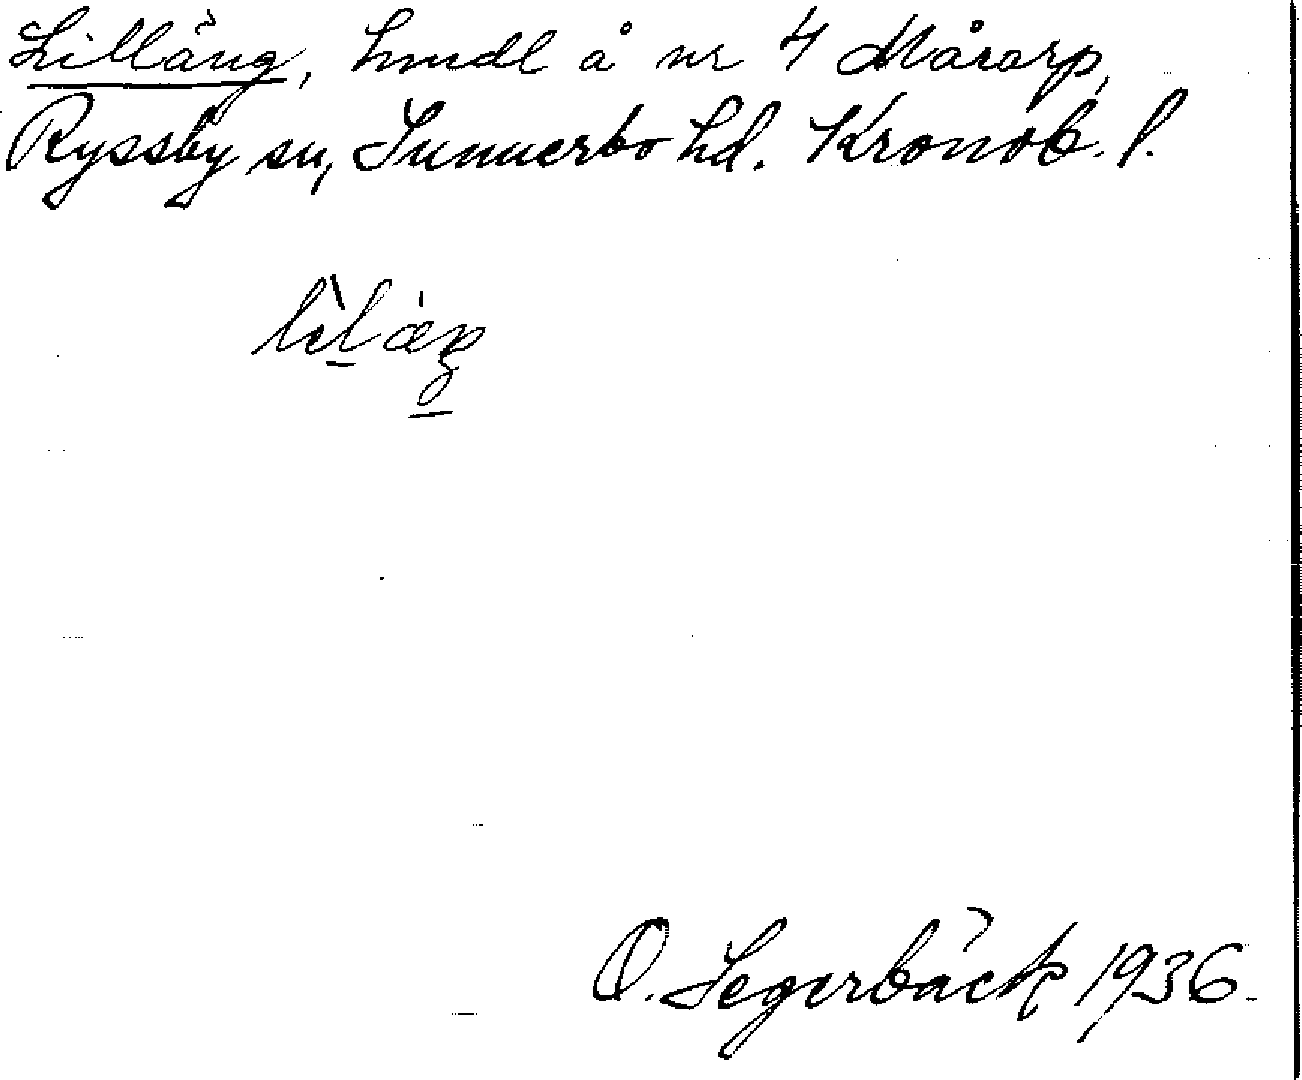 Lilläng, hmdl å nr 4 Målarp,
Ryssby sn, Sunnerbo hd. Kronob. l.
O. Segerbäck 1936.